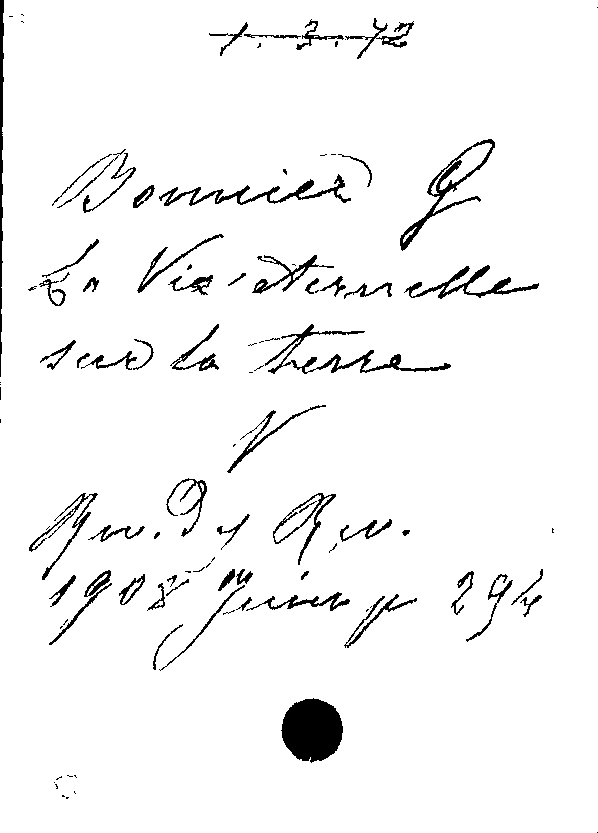 1. 3. 42
Bonnier G
La Vie éternelle
sur la terre
V
Rev. des Rev.
1908 Juin p 294